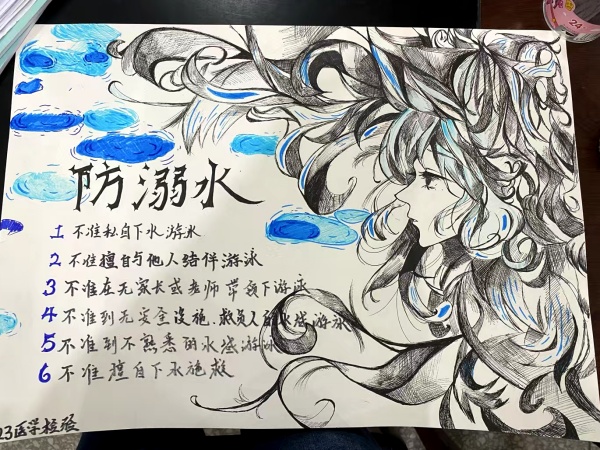 防溺水
1 不准私自下水游泳
2 不准擅自与他人结伴游泳
3 不准在无家长或老师带领下游泳
4 不准到无安全设施、救员人的水域游泳
5 不准到不熟悉的水域游泳
6 不准擅自下水施救
23医学检验
24